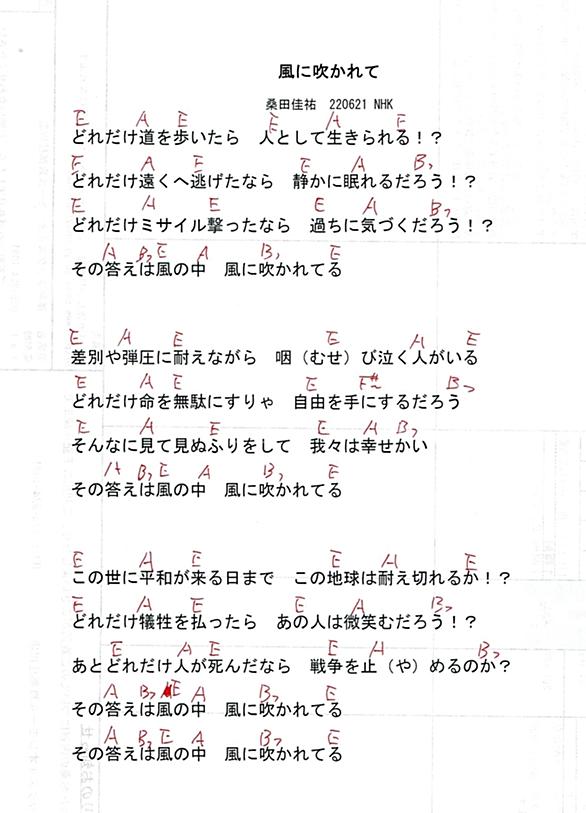 風に吹かれて
桑田佳祐 220621 NHK
E A E E A E
どれだけ道を歩いたら 人として生きられる！？
E A E E A B7
どれだけ遠くへ逃げたなら 静かに眠れるだろう！？
E A E E A B7
どれだけミサイル撃ったなら 過ちに気づくだろう！？
A B7 E A B7 E
その答えは風の中 風に吹かれてる
E A E E A E
差別や弾圧に耐えながら 咽（むせ）び泣く人がいる
E A E E F# B7
どれだけ命を無駄にすりゃ 自由を手にするだろう
E A E E A B7
そんなに見て見ぬふりをして 我々は幸せかい
A B7 E A B7 E
その答えは風の中 風に吹かれてる
E A E E A E
この世に平和が来る日まで この地球は耐え切れるか！？
E A E E A B7
どれだけ犠牲を払ったら あの人は微笑むだろう！？
E A E E A B7
あとどれだけ人が死んだなら 戦争を止（や）めるのか？
A B7 E A B7 E
その答えは風の中 風に吹かれてる
A B7 E A B7 E
その答えは風の中 風に吹かれてる